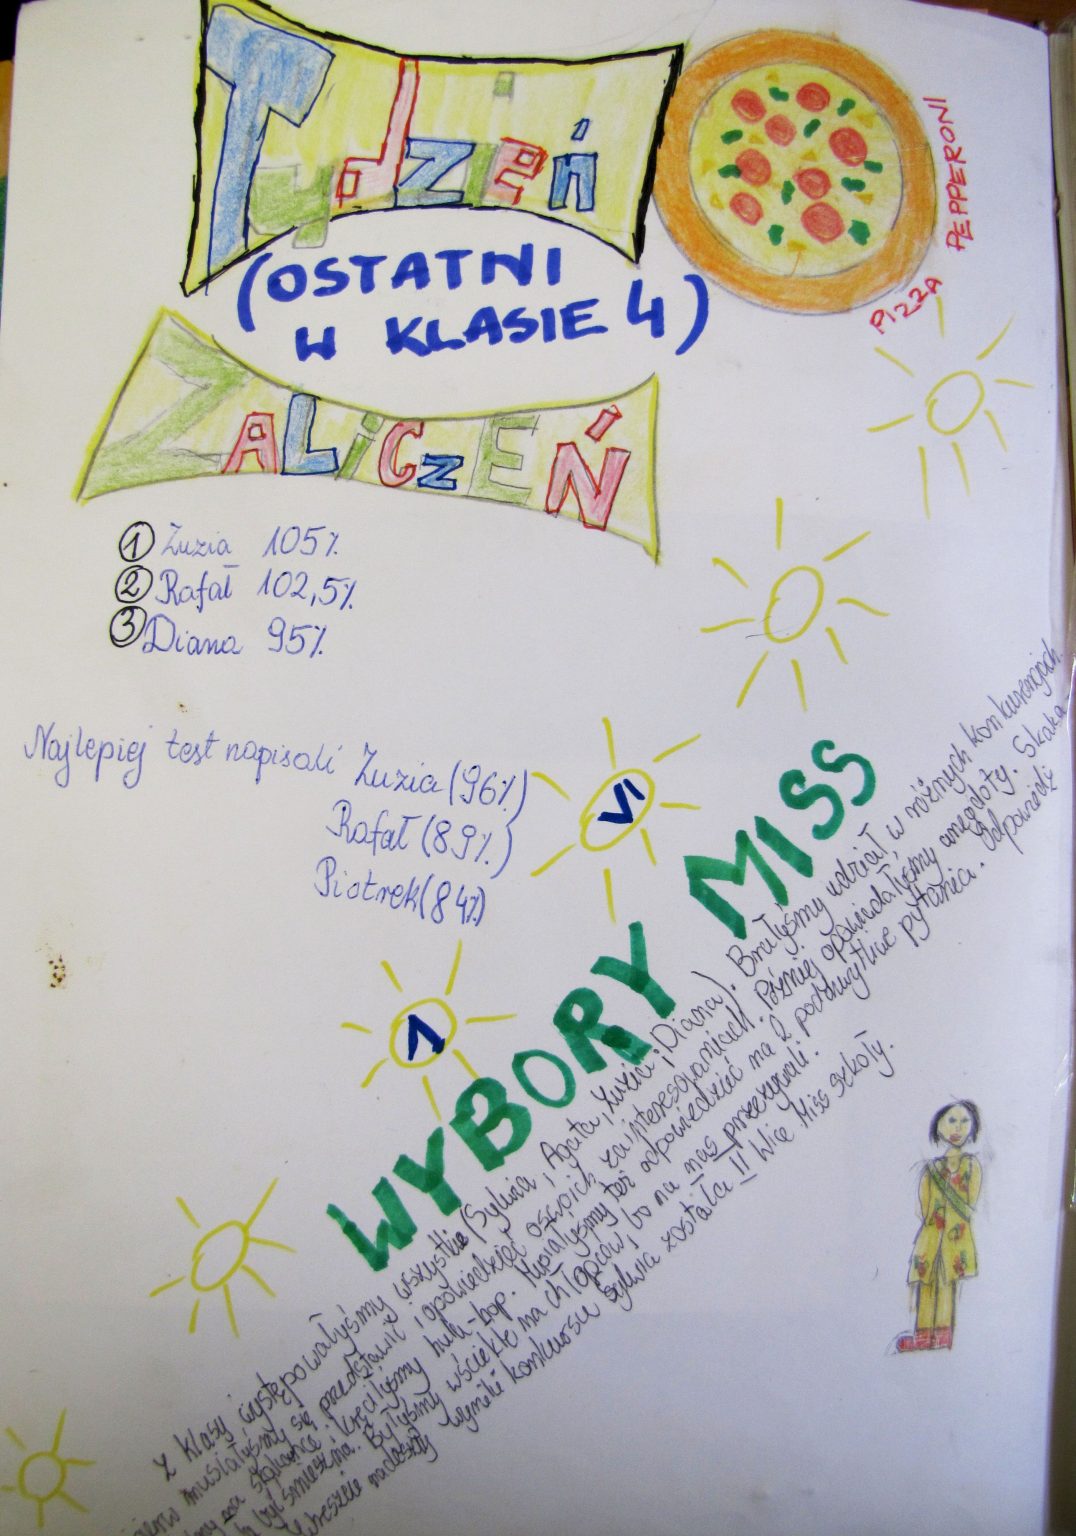 Tydzień
(OSTATNI
W KLASIE 4)
ZALICZEŃ
PIZZA PEPPERONI
1 Zuzia 105%
2 Rafał 102,5%
3 Diana 95%
Najlepiej test napisali Zuzia (96%)
Rafał (89%)
Piotrek (84%)
1 VI
WYBORY MISS
Z klasy występowałyśmy wszystkie (Sylwia, Agata, Zuzia, Diana). Brałyśmy udział w różnych konkurencjach.
musiałyśmy się przedstawić i opowiedzieć o swoich zainteresowaniach. Później opowiadałyśmy anegdoty. Skaka
na skakance i kręciłyśmy hula-hop. Musiałyśmy też odpowiedzieć na 2 podchwytliwe pytania. Odpowiedź
być śmieszna. Byłyśmy wściekłe na chłopców, bo na nas przezywali.
Wreszcie nadeszły wyniki konkursu Sylwia została II Wice Miss szkoły.